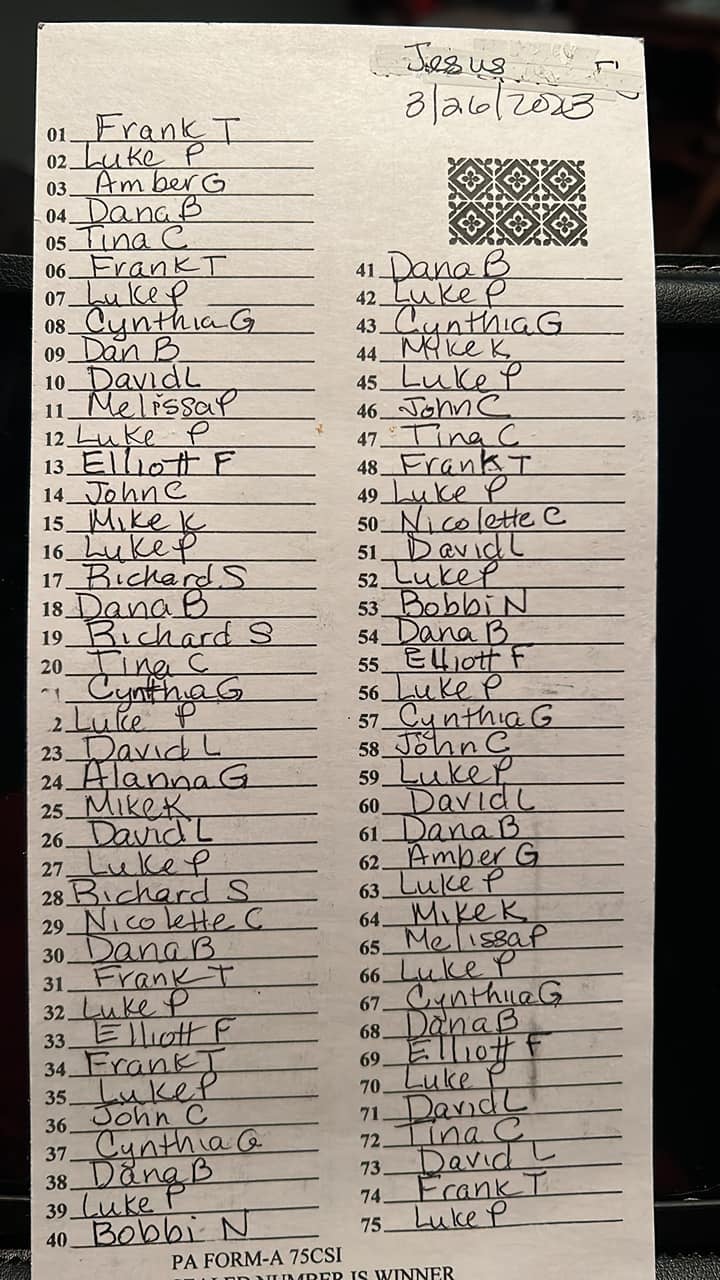 Jesus
3/26/2023
01 Frank T
02 Luke P
03 Amber G
04 Dana B
05 Tina C
06 Frank T
07 Luke P
08 Cynthia G
09 Dan B
10 David L
11 Melissa P
12 Luke P
13 Elliott F
14 John C
15 Mike K
16 Luke P
17 Richard S
18 Dana B
19 Richard S
20 Tina C
1 Cynthia G
2 Luke P
23 David L
24 Alanna G
25 Mike K
26 David L
27 Luke P
28 Richard S
29 Nicolette C
30 Dana B
31 Frank T
32 Luke P
33 Elliott F
34 Frank T
35 Luke P
36 John C
37 Cynthia G
38 Dana B
39 Luke P
40 Bobbi N
41 Dana B
42 Luke P
43 Cynthia G
44 Mike K
45 Luke P
46 John C
47 Tina C
48 Frank T
49 Luke P
50 Nicolette C
51 David L
52 Luke P
53 Bobbi N
54 Dana B
55 Elliott F
56 Luke P
57 Cynthia G
58 John C
59 Luke P
60 David L
61 Dana B
62 Amber G
63 Luke P
64 Mike K
65 Melissa P
66 Luke P
67 Cynthia G
68 Dana B
69 Elliott F
70 Luke P
71 David L
72 Tina C
73 David L
74 Frank T
75 Luke P
PA FORM-A 75CSI
SEALED NUMBER IS WINNER